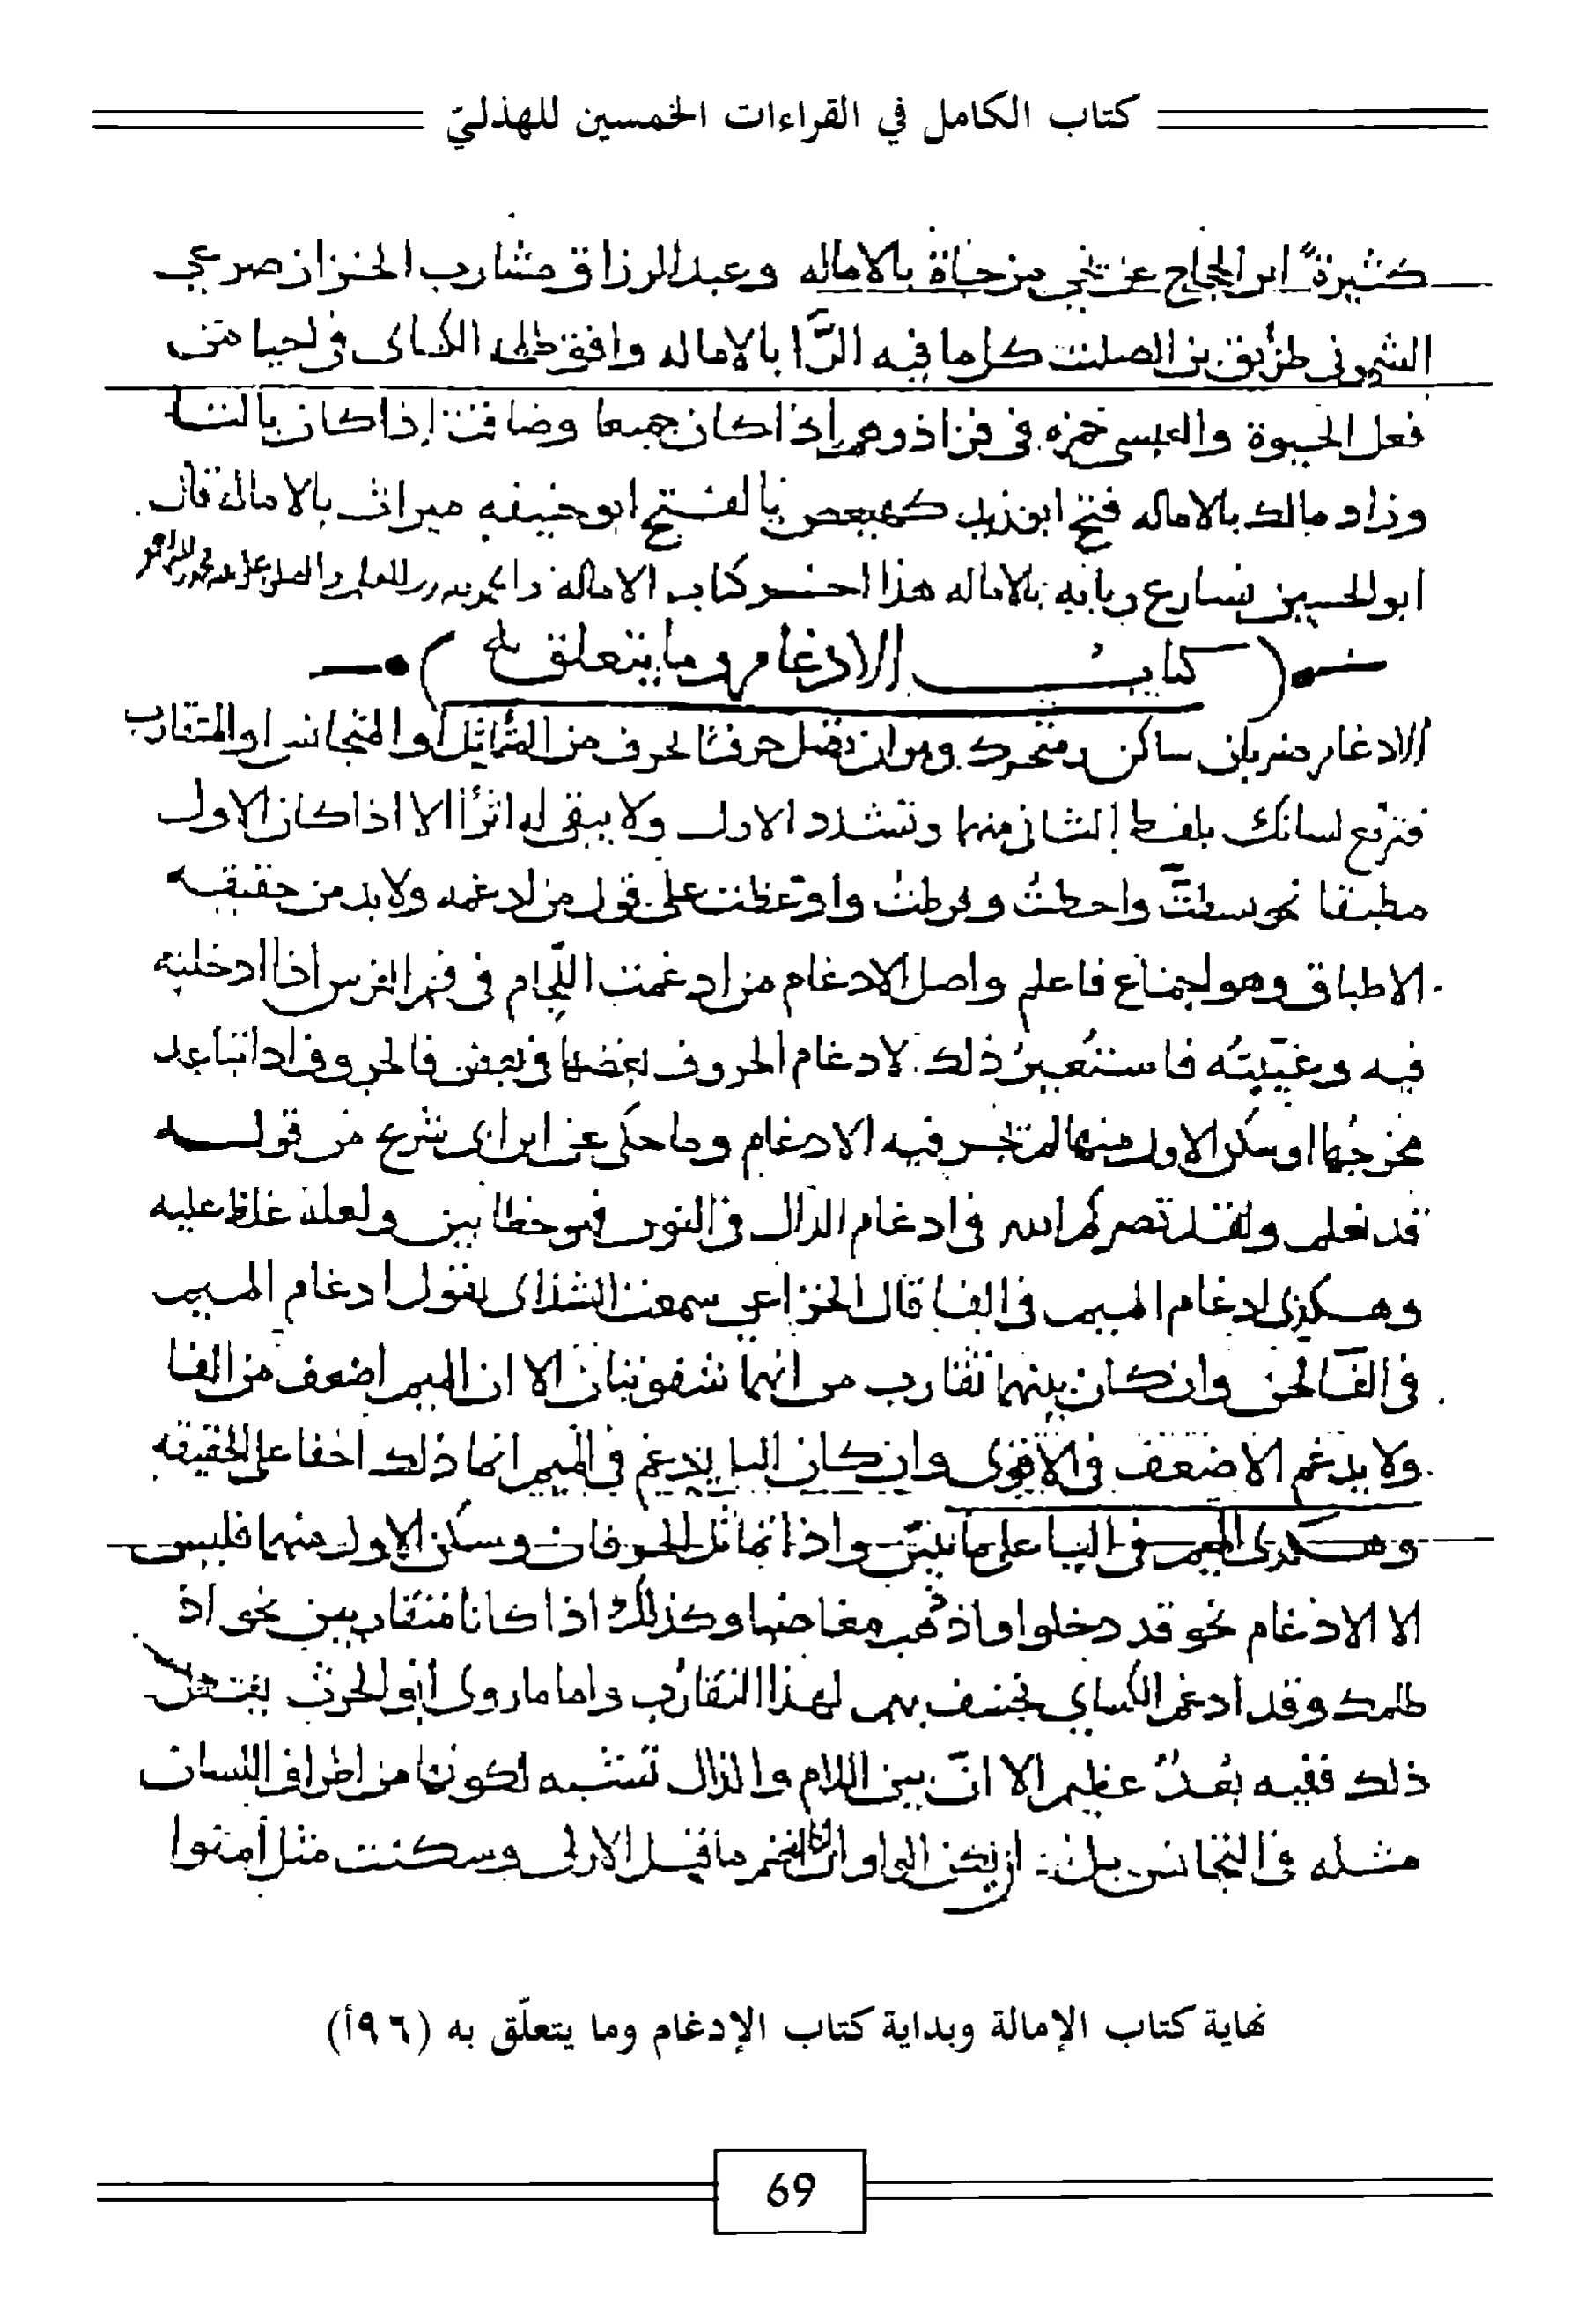 كتاب الكامل في القراءات الخمسين للهذليّ
كثيرة ابن الحجاج عن يحيى مزجاة بالاماله وعبد الرزاق مشارب الخزاز
الشموني طريق بن الصلت كل ما فيه الرَّا بالاماله وافق الكساى في احيا متى
فعل الحيوة والعبسى حمزه في اذا كان جميعا وضاقت اذا كان بالتا
وزاد مالك بالاماله فتح ابو زيد كهيعص بالفتح ابو حنيفه ميراث بالاماله قال
ابو الحسين نسارع بالاماله هذا اخر كتاب الاماله
كتاب الادغام وما يتعلق به
الادغام ضربان ساكن ومتحرك وهو ان تصل حرفا بحرف من المتماثل او المتجانس او المتقارب
فترفع لسانك بلفظ الثاني منهما وتشدد الاول ولا يبقى له اثرًا الا اذا كان الاول
مطبقا نحو بسطتَّ واحطتُ وفرطتُ واوعظت على قول من ادغمه ولا بد من حقيقه
الاطباق وهو اجماع فاعلم واصل الادغام من ادغمت اللّجام في فم الفرس اذا ادخلته
فيه وغيّبتُه فاستُعيرُ ذلك لادغام الحروف بعضها في بعض فالحروف اذا تباعد
مخرجُها او سكن الاول منها لم تجز فيه الادغام وما حكى عن ابن ابى شريح من قوله
قد نعلم ولقد نصركم الله في ادغام الدال في النون فهو خطا بين ولعله غلط عليه
وهكذى ادغام الميم في الفا قال الخزاعي سمعت الشذاى يقول ادغام الميم
في الفا لحن وان كان بينهما تقارب من انهما شفويتان الا ان الميم اضعف من الفا
ولا يدغم الاضعف في الاقوى وان كان البا يدغم في الميم انما ذلك اخفا على الحقيقه
وهكذى الميم في البا على ما نبيّن واذا تماثل الحرفان وسكن الاول منهما فليس
الا الادغام نحو قد دخلوا واذ ذهب مغاضبا وكذلك اذا كانا متقاربين نحو اذ
ظلمت وقد ادغم الكساي نخسف بهم لهذا التقارُب واما ما روى ابو الحرث يفعل
ذلك ففيه بُعدٌ عظيم الا انّ بين اللام والذال تشبه لكونها من اطراف اللسان
مثله في التجانس بلى ان يكن الواو انضم ما قبل الاولى وسكنت مثل آمنوا
نهاية كتاب الإمالة وبداية كتاب الإدغام وما يتعلّق به (٩٦أ)
69